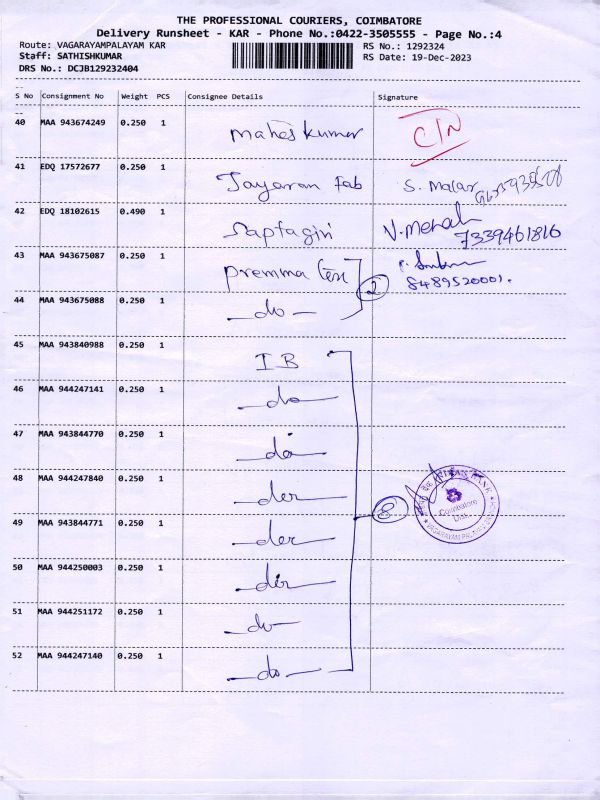 THE PROFESSIONAL COURIERS, COIMBATORE
Delivery Runsheet - KAR - Phone No.:0422-3505555 - Page No.:4
Route: VAGARAYAMPALAYAM KAR RS No.: 1292324
Staff: SATHISHKUMAR RS Date: 19-Dec-2023
DRS No.: DCJB129232404
S No Consignment No Weight PCS Consignee Details Signature
40 MAA 943674249 0.250 1 Mahes kumar C/N
41 EDQ 17572677 0.250 1 Jayaram Fab S. Malar
42 EDQ 18102615 0.490 1 Saptagiri 7339461816
43 MAA 943675087 0.250 1 Premma 2 8489520001.
44 MAA 943675088 0.250 1 -do-
45 MAA 943840988 0.250 1 IB
46 MAA 944247141 0.250 1 -do-
47 MAA 943844770 0.250 1 -do-
48 MAA 944247840 0.250 1 -do- 8 BANK Coimbatore
49 MAA 943844771 0.250 1 -do-
50 MAA 944250003 0.250 1 -do-
51 MAA 944251172 0.250 1 -do-
52 MAA 944247140 0.250 1 -do-